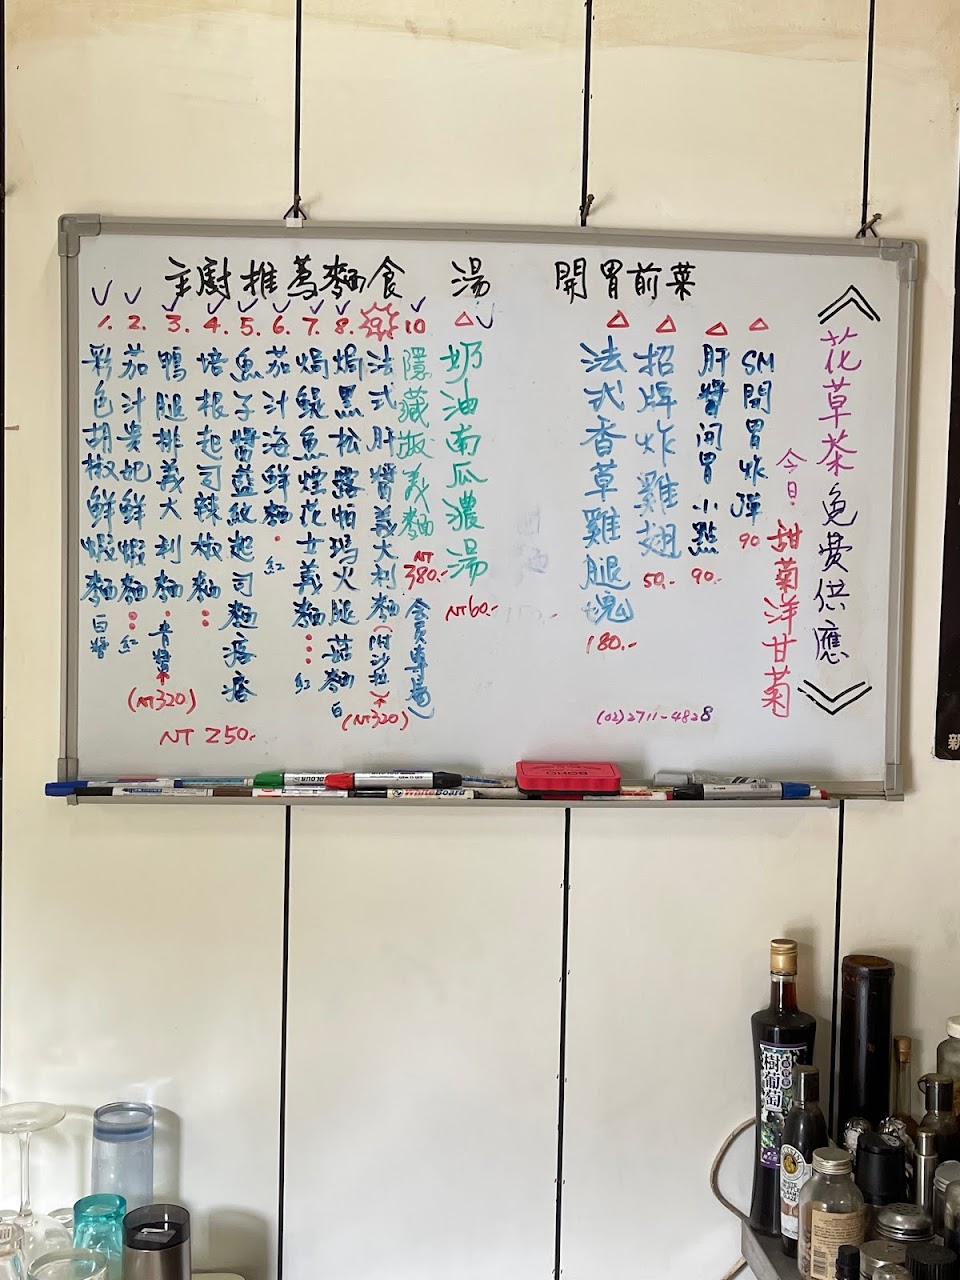 主廚推薦麵食
1. 彩色胡椒鮮蝦麵 白醬
2. 茄汁貴妃鮮蝦麵 紅
3. 鴨腿排義大利麵 青醬
(NT320)
4. 培根起司辣椒麵
5. 魚子醬藍紋起司麵疙瘩
6. 茄汁海鮮麵 紅
7. 焗鯷魚煙花女義麵 紅
8. 焗黑松露帕瑪火腿菇麵 白
9. 法式肝醬義大利麵(附沙拉)
(NT320)
10 隱藏版義麵
NT
380.-
會員專屬
NT 250.-
湯
奶油南瓜濃湯
NT60.-
開胃前菜
法式香草雞腿塊
180.-
招牌炸雞翅
50.-
肝醬開胃小點
90.-
SM開胃炸彈
90
(02)2711-4828
花草茶免費供應
今日: 甜菊洋甘菊
WhiteBoard
樹葡萄
新